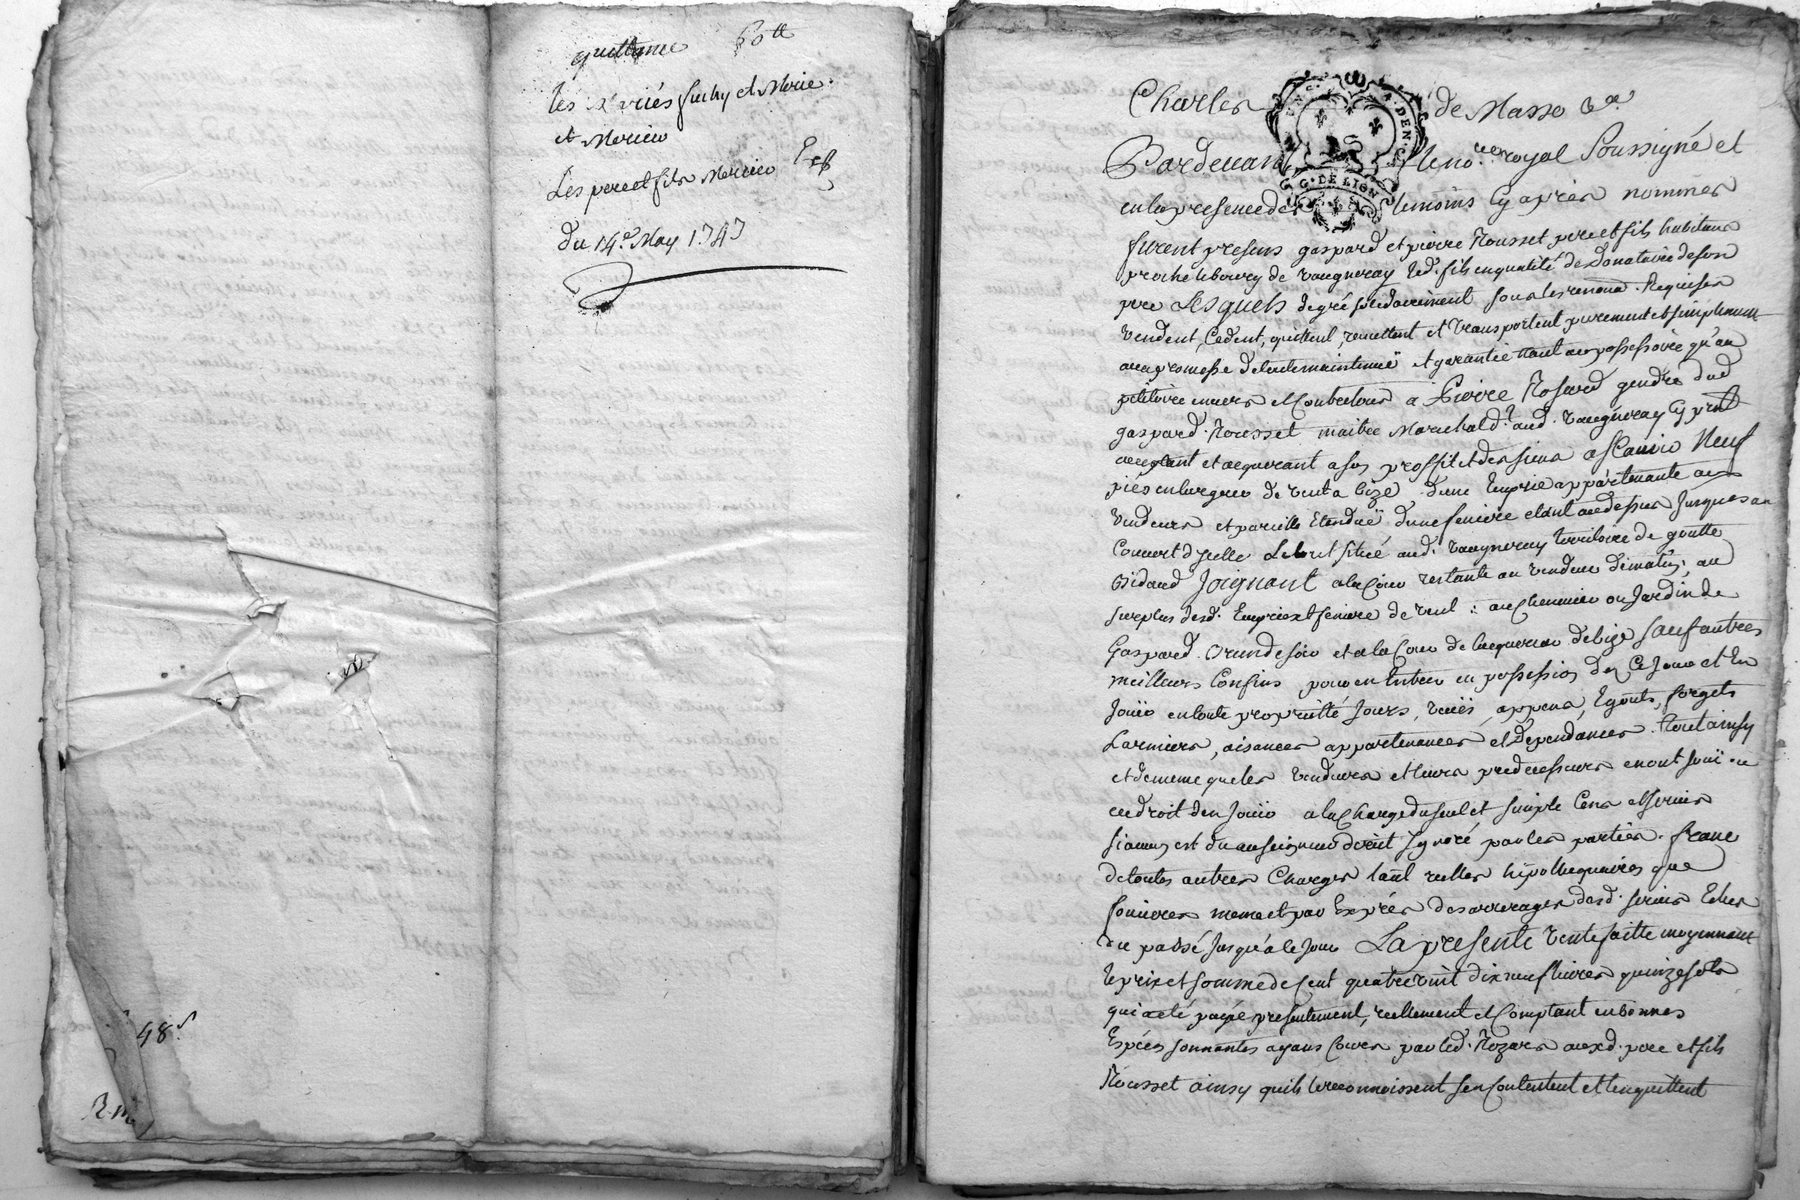 quittance 60tt
les mariés Suchy et Mercie
et Mercier
Les pere et fils Mercier Exp
du 14e May 1747
48 s
R. m
Charles de Masso &a
G. DE LION
Pardevant le no.re royal Soussigné et
en la presence des temoins cy apres nommes
furent presens gaspard et pierre Rousset pere et fils habitans
proche le bourg de vaugneray led. fils en qualité de Donataire de son
pere Lesquels de gré solidairement sous les renon.on Requises
vendent, Cedent, quittent, remettent et transportent purement et simplement
avec promesse de toute maintenüe et garantie tant au possessoire qu'au
petitoire envers et Contre tous a Pierre Rosard gendre dud
gaspard Rousset maitre Marechald.t aud. vaugneray Cy p.nt
acceptant et acquerant a son proffit et des siens a Scavoir Neuf
piés en largeur de vent a bize d'une Ecurie appartenante aux
vendeurs et pareille Etendüe d'une feniere etant au dessus Jusques au
Couvert d'ycelle Le tout situé aud. vaugneray territoire de goutte
Joignant a la Cour restante au vendeur de matin, au
surplus desd. Ecurie et feniere de vent: au Chemin ou Jardin de
Gaspard et a la Cour de l'acquereur de bize sauf autres
meilleurs Confins pour en Entrer en possession des Ce Jour et En
Jouïr en toute proprieté Jours, veües, appens, Egouts, forgets
Larmiers, aisances appartenances et Dependances Tout ainsy
et de meme que les vendeurs et leurs predecesseurs en ont Jouï ou
eu droit d'en Jouïr a la Charge du seul et simple Cens et servis
si aucun est du au seigneur direct Ignoré par les parties. franc
de toutes autres Charges tant reelles hipothequaires que
foncieres meme et par Exprés des arrerages desd. servis Echus
du passé Jusqu'a ce Jour La presente vente faitte moyennant
le prix et somme de Cent quatre vint dix neuf livres quinze sols
qui a eté payé presentement, reellement et Comptant en bonnes
Espéces sonnantes ayans Cours par led. Rozard auxd. pere et fils
Rousset ainsy qu'ils le reconnoissent s'en Contentent et l'en quittent